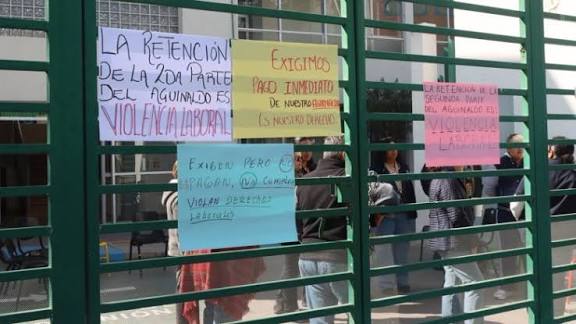 LA RETENCIÓN
DE LA 2DA PARTE
DEL AGUINALDO ES
VIOLENCIA LABORAL
EXIGIMOS
PAGO INMEDIATO
DE NUESTRO AGUINALDO
(ES NUESTRO DERECHO)
LA RETENCION DE LA
SEGUNDA PARTE
DEL AGUINALDO ES:
VIOLENCIA
LABORAL
EXIGEN PERO NO
PAGAN, NO CUMPLEN
VIOLAN DERECHOS
LABORALES